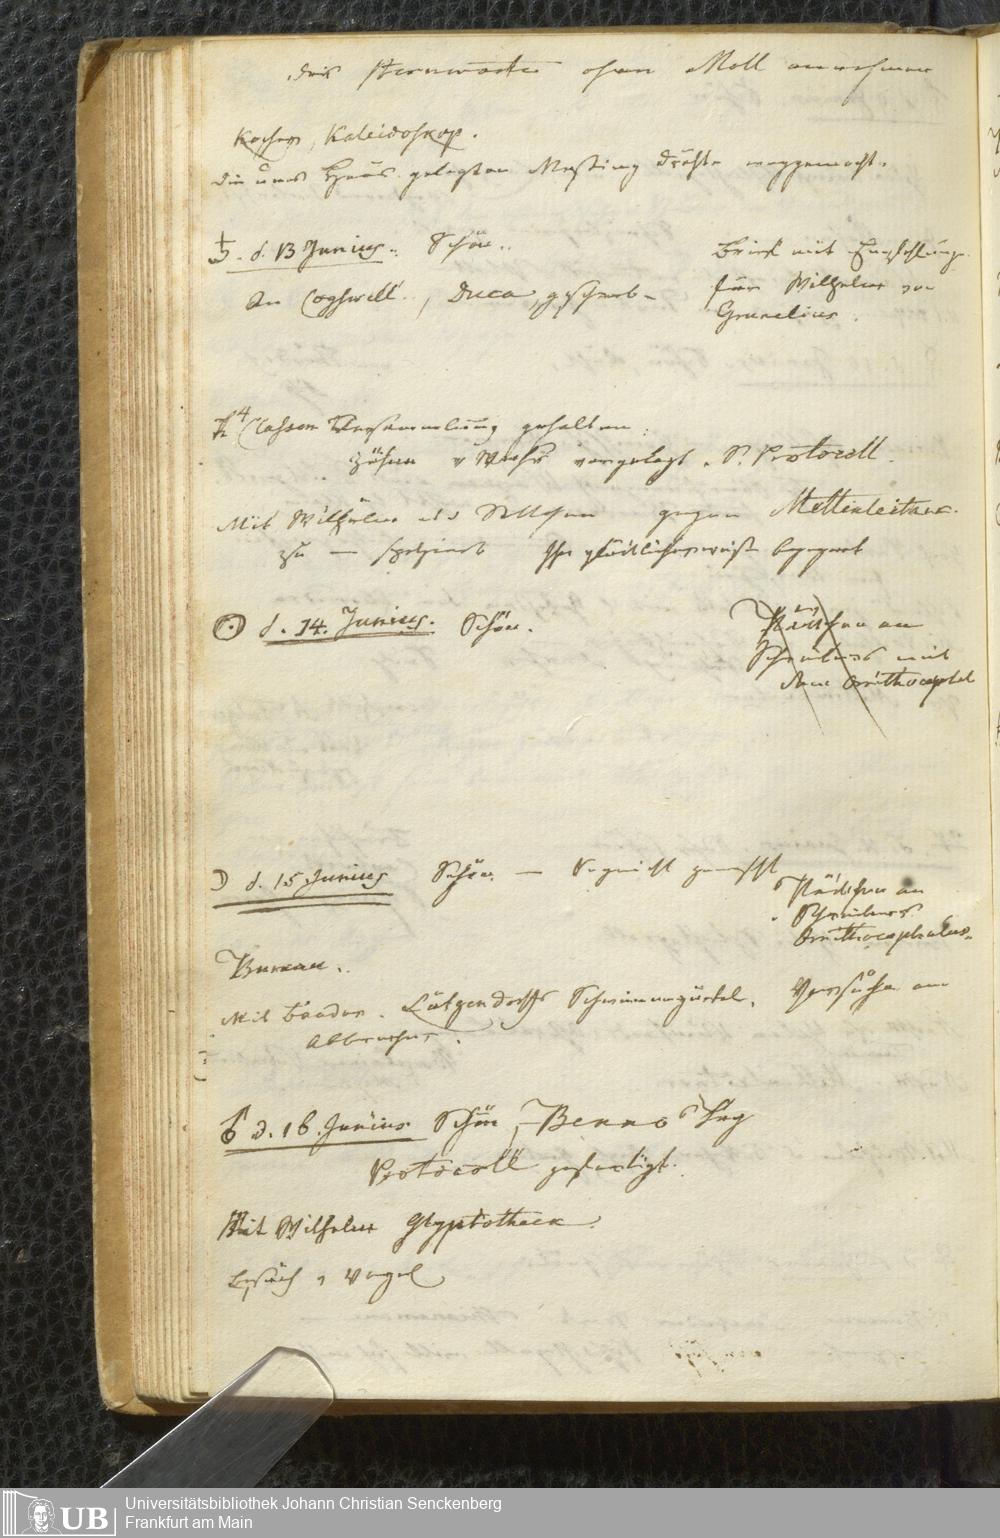 die Sternwarte ohne Moll annehmen
Kochers, Kaleidoskop.
die ums Haus gelegten Messing Drähte weggemacht.
♄. d. 13 Junius. Schön.
An Cogswell, Duca, geschrieb-
Brief mit Empfehlung
für Wilhelm von
Grunelius.
Classen Versammlung gehalten:
Zähne v vorgelegt. S. Protocoll.
Mit Wilhelm und gegen Mettenleitner.
zu — spaziert Ihn glücklicherweise begegnet
☉ d. 14. Junius. Schön.
Kästchen an
Schreibers mit
dem Ornithocephal
☽ d. 15 Junius Schön. —
Kästchen an
Schreibers
Ornithocephalus.
Bureau.
Mit Baader. Lütgendorffs Schwimmgürtel. Versuche am
Abrecher.
♂ d. 16. Junius Schön, Bennos Tag
Protocoll gefertigt.
Mit Wilhelm Glyptotheck.
Besuch v Vogel
Universitätsbibliothek Johann Christian Senckenberg
UB
Frankfurt am Main